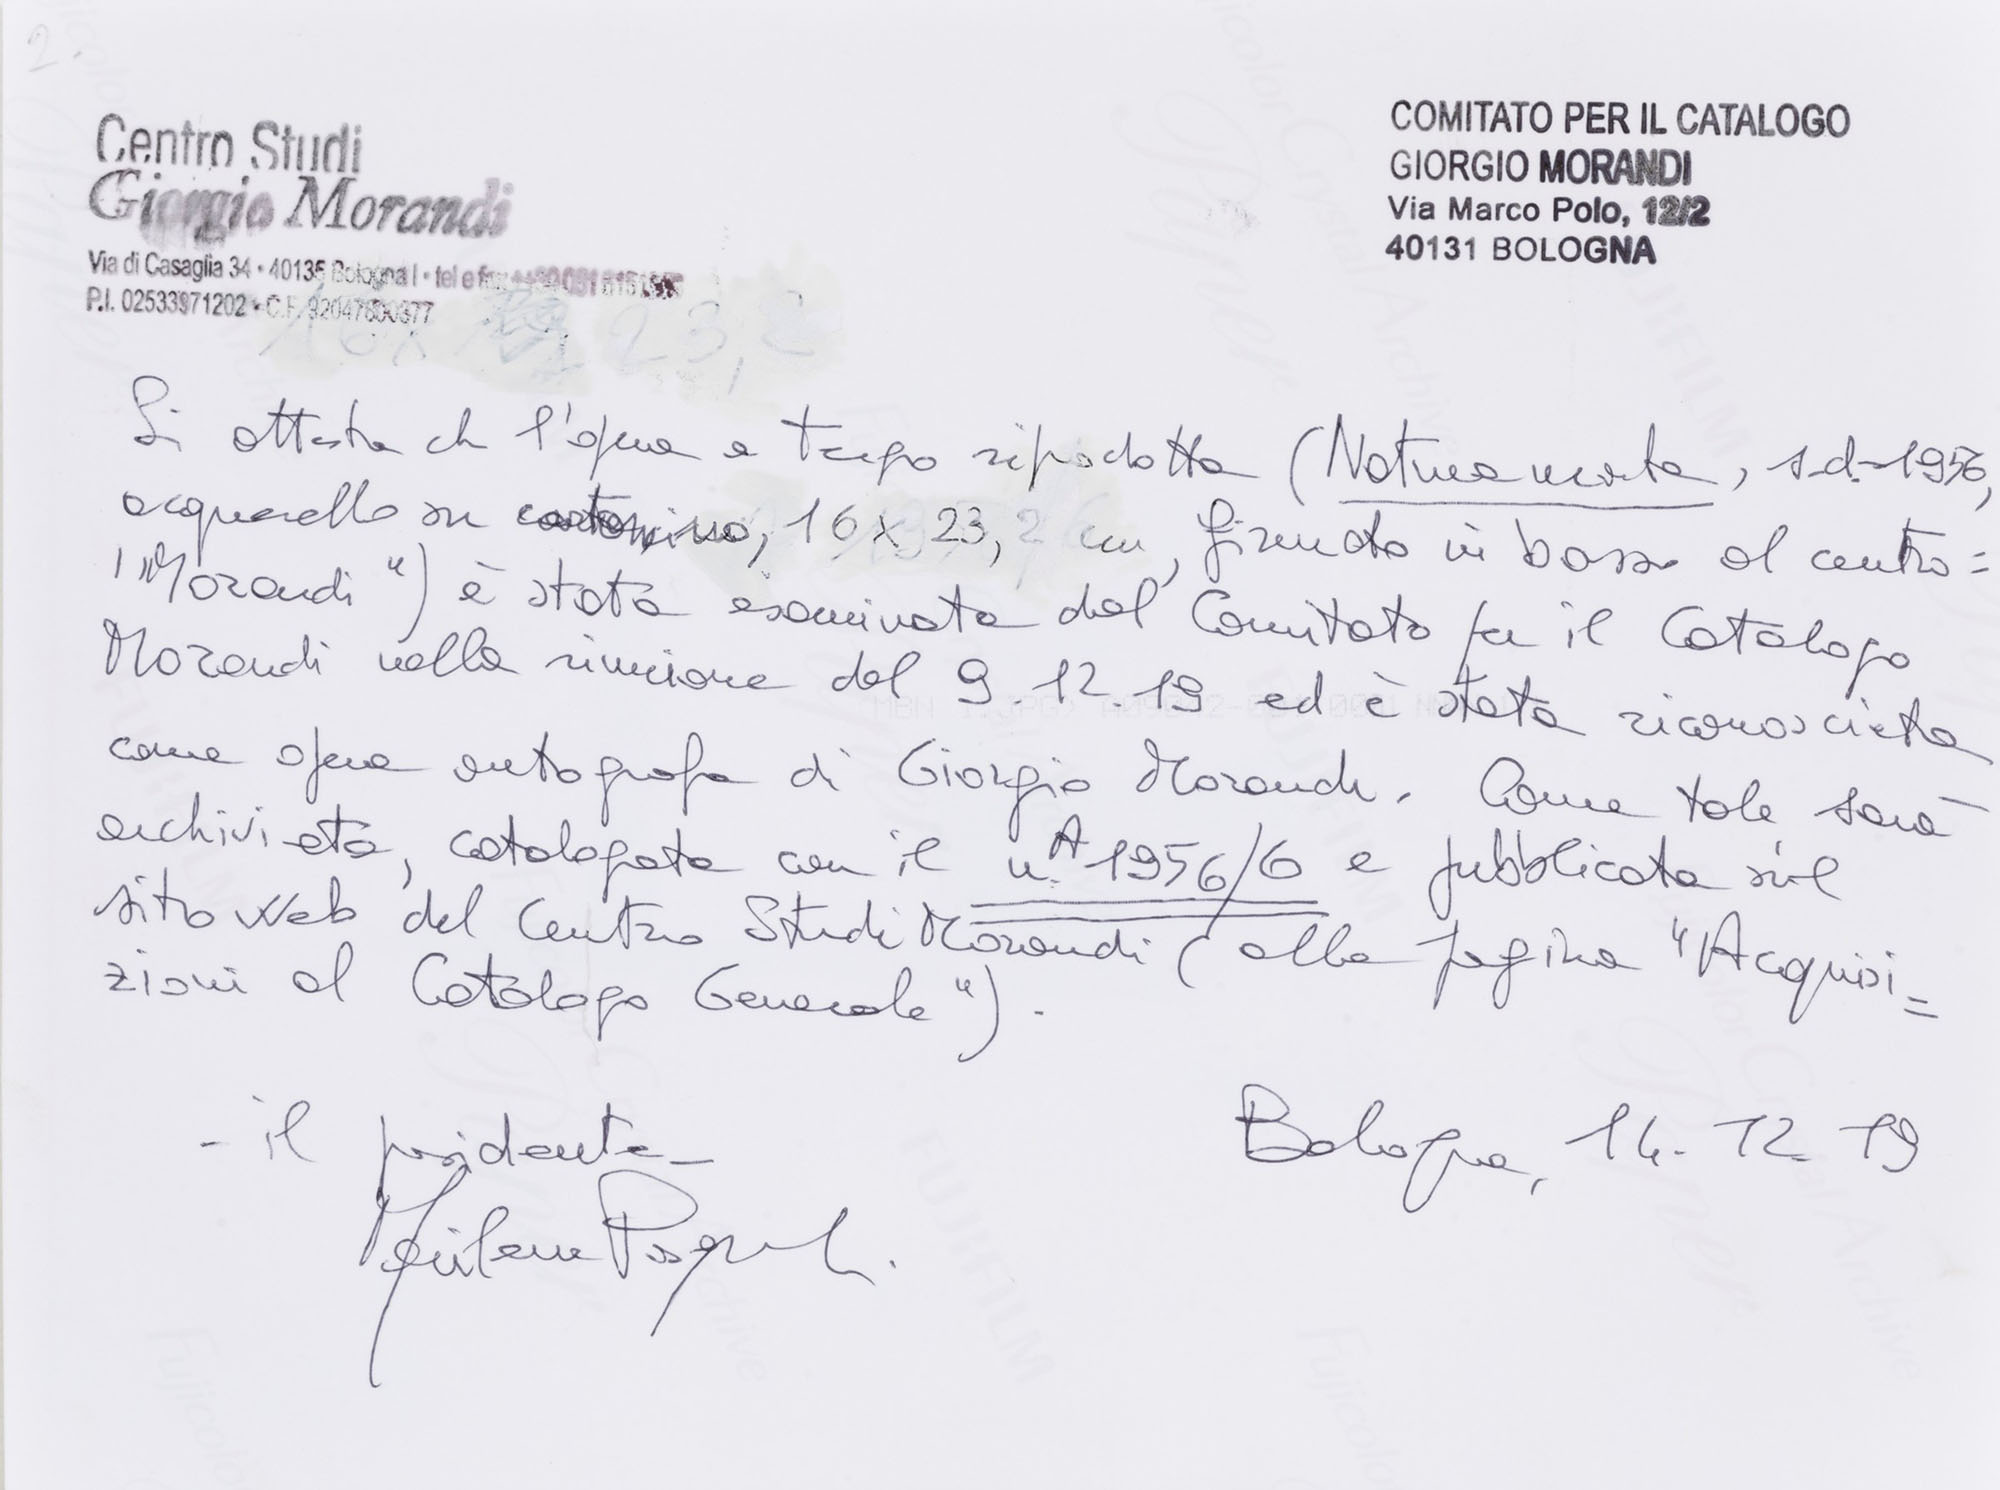 2.
Centro Studi
Giorgio Morandi
Via di Casaglia 34 • 40135 Bologna I • tel e fax
P.I. 02533971202 • C.F.
COMITATO PER IL CATALOGO
GIORGIO MORANDI
Via Marco Polo, 12/2
40131 BOLOGNA
16 x 23,2
Si attesta che l'opera a tergo riprodotta (Natura morta, s.d.-1956,
acquerello su cartoncino, 16 x 23,2 cm, firmato in basso al centro=
"Morandi") è stata esaminata dal Comitato per il Catalogo
Morandi nella riunione del 9.12.19 ed è stata riconosciuta
come opera autografa di Giorgio Morandi. Come tale sarà
archiviata, catalogata con il n. A 1956/6 e pubblicata sul
sito web del Centro Studi Morandi (alla pagina "Acquisi=
zioni al Catalogo Generale").
- il presidente -
Marilena Pasquali.
Bologna, 14.12.19